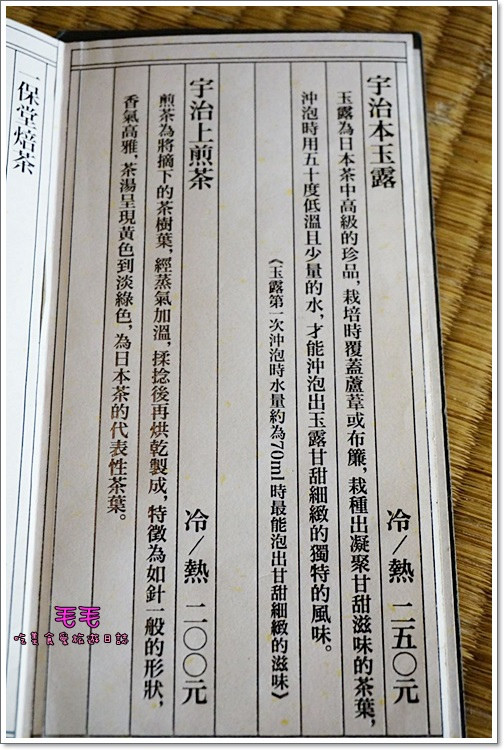 宇治本玉露 冷/熱 二五〇元
玉露為日本茶中高級的珍品，栽培時覆蓋蘆葦或布簾，栽種出凝聚甘甜滋味的茶葉，
沖泡時用五十度低溫且少量的水，才能沖泡出玉露甘甜細緻的獨特的風味。
《玉露第一次沖泡時水量約為70ml時最能泡出甘甜細緻的滋味》
宇治上煎茶 冷/熱 二〇〇元
煎茶為將摘下的茶樹葉，經蒸氣加溫，揉捻後再烘乾製成，特徵為如針一般的形狀，
香氣高雅，茶湯呈現黃色到淡綠色，為日本茶的代表性茶葉。
一保堂焙茶
毛毛
吃喜食愛旅遊日誌